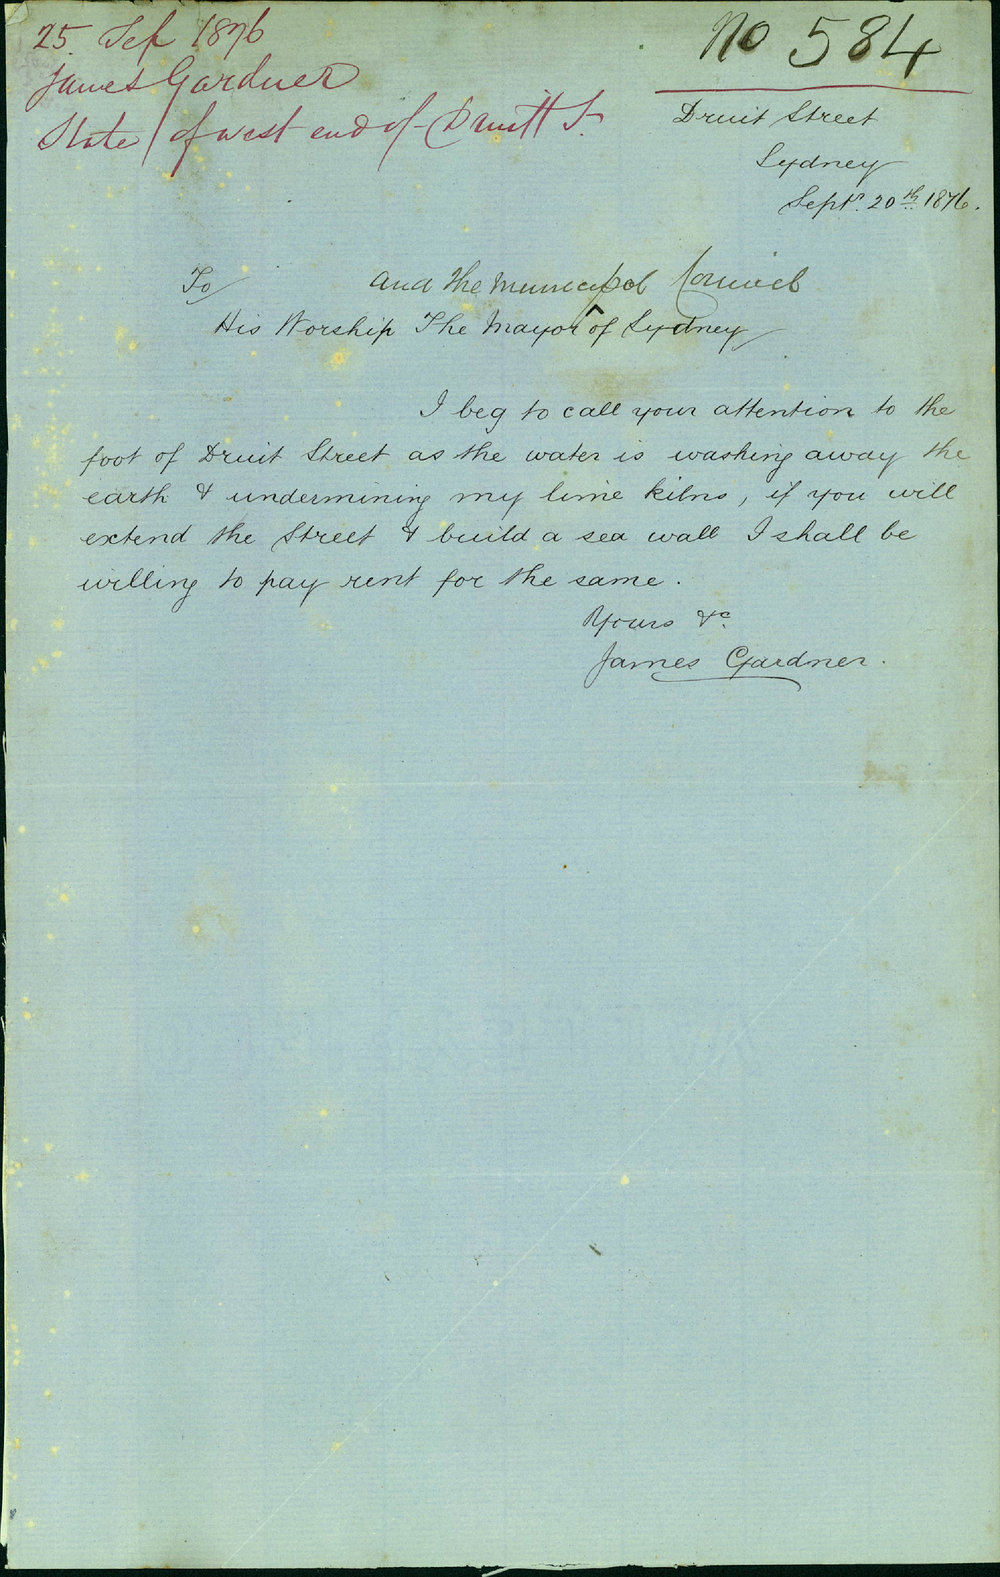 25. Sep 1876
James Gardner
State of west end of Druitt St
No 584
Druit Street
Sydney
Septr. 20th 1876.
To
and the Municipal Council
His Worship The Mayor ^ of Sydney
I beg to call your attention to the
foot of Druit Street as the water is washing away the
earth & undermining my lime kilns, if you will
extend the Street & build a sea wall I shall be
willing to pay rent for the same.
Yours &c.
James Gardner.